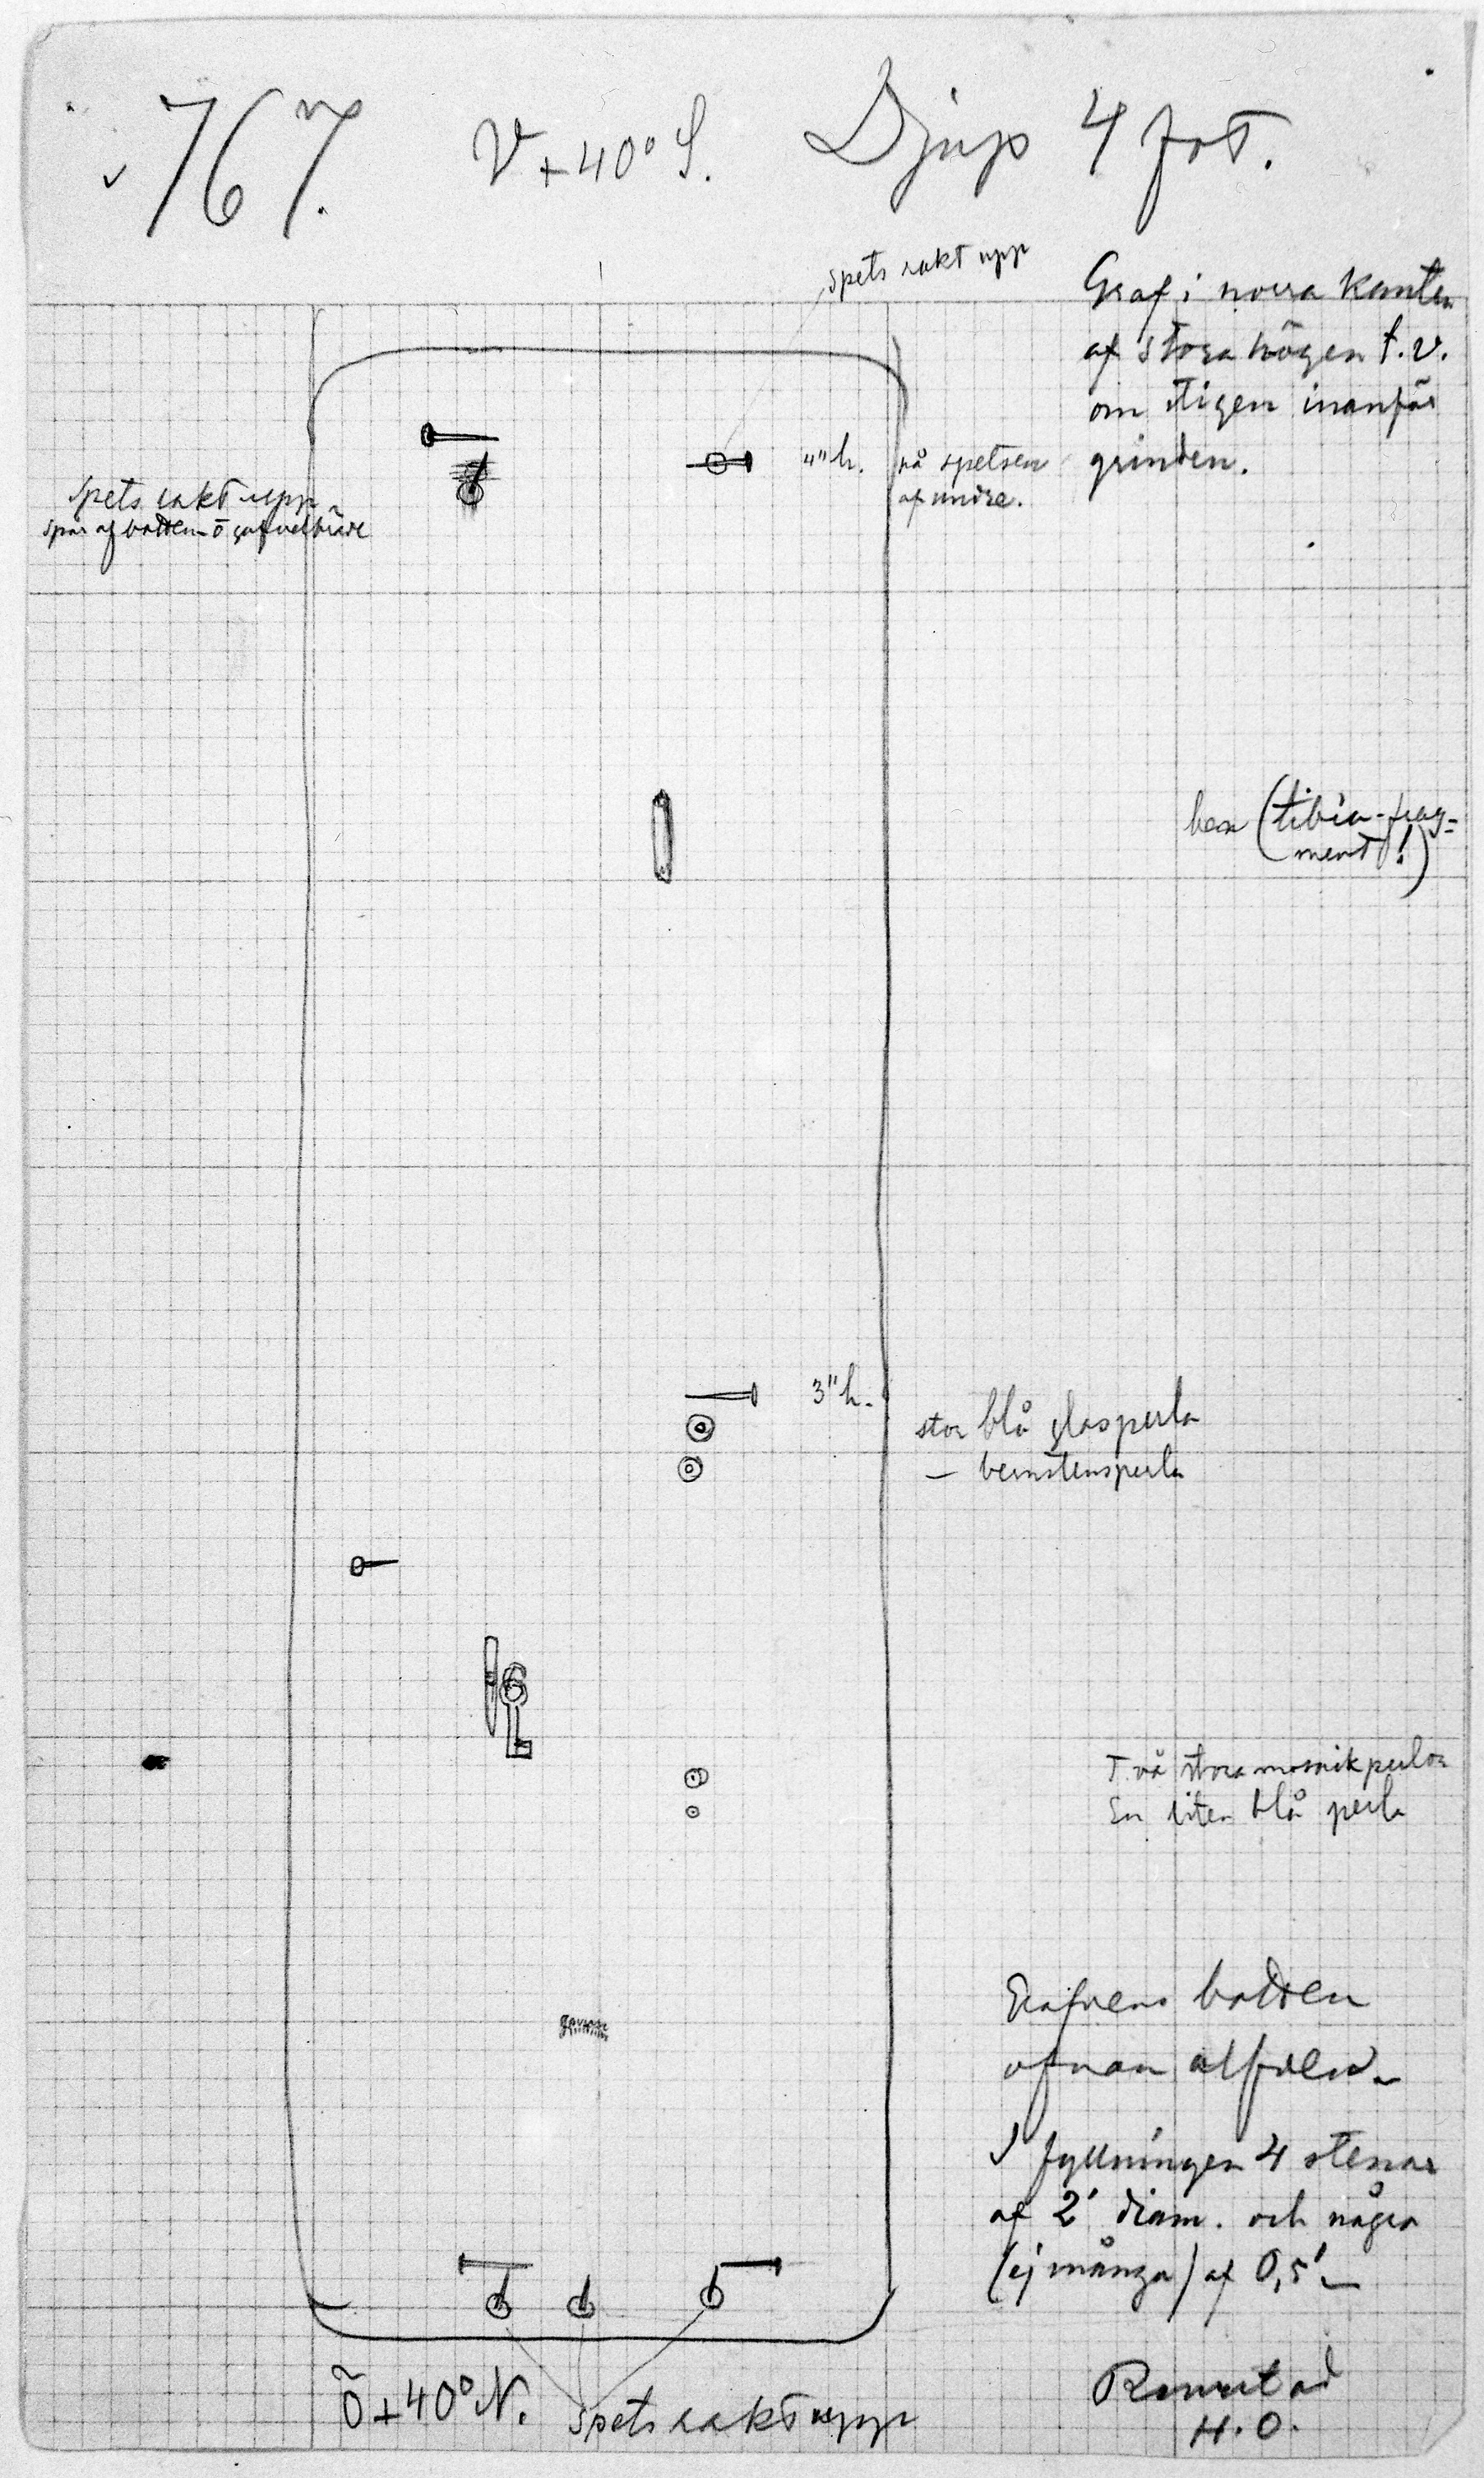 767. V+40° S. Djup 4 fot.
spets rakt upp
Graf i norra kanten
af stora högen t.v.
om stigen inanför
grinden.
4" h. på spetsen
af undre.
Spets rakt upp
spår af botten o gafvelbräde
ben (tibia-frag-
ment!)
3" h.
stor blå glasperla
— bernstensperla
Två stora mosaikperlor
En liten blå perla
Grafvens botten
ofvan alfven
I fyllningen 4 stenar
af 2' diam. och några
(ej många) af 0,5'
Ö+40° N. Spets rakt upp
Renritad
H. O.